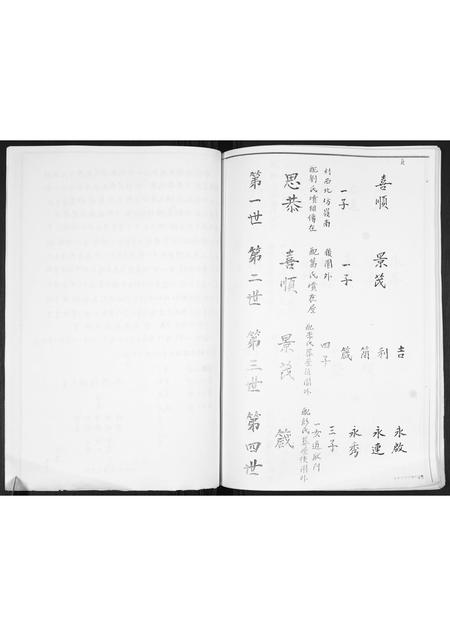 第一世
思恭
配劉氏墳相傳在
村西北坊嶺南
一子
喜順
第二世
喜順
配葛氏墳在屋
後園外
一子
景茂
第三世
景茂
配李氏葬屋後園外
四子
箴
簡
利
吉
第四世
箴
氏葬屋後園外
一女適耿門
三子
永秀
永連
永啟